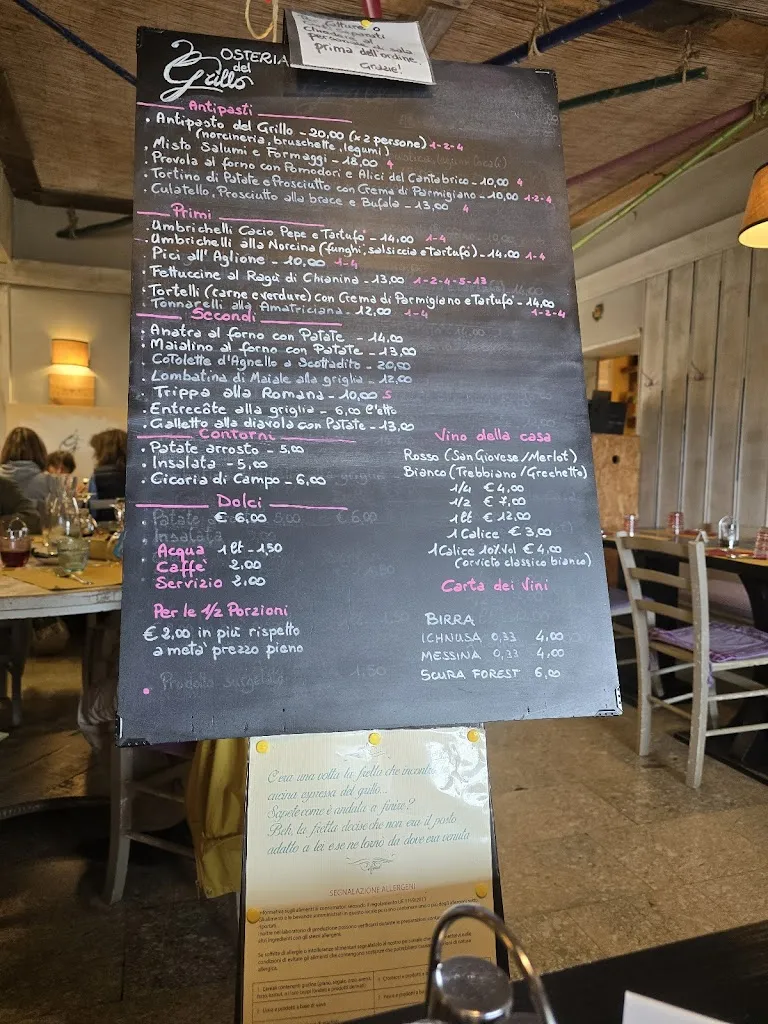 prima dell'ordine.
Grazie!
OSTERIA
del
Grillo
Antipasti
. Antipasto del Grillo - 20,00 (x 2 persone) 1-2-4
(norcineria, bruschette, legumi)
. Misto Salumi e Formaggi - 18,00 4
. Provola al forno con Pomodori e Alici del Cantabrico - 10,00 4
. Tortino di Patate e Prosciutto con Crema di Parmigiano - 10,00 1-2-4
. Culatello, Prosciutto alla brace e Bufala - 13,00 4
Primi
. Ambrichelli Cacio Pepe e Tartufo - 14,00 1-4
. Ambrichelli alla Norcina (funghi, salsiccia e Tartufo) - 14,00 1-4
. Pici all'Aglione - 10,00 1-4
. Fettuccine al Ragù di Chianina - 13,00 1-2-4-5-13
. Tortelli (carne e verdure) con Crema di Parmigiano e Tartufo - 14,00 1-2-4
. Tonnarelli alla Amatriciana - 12,00 1-4
Secondi
. Anatra al forno con Patate - 14,00
. Maialino al forno con Patate - 13,00
. Cotolette d'Agnello a Scottadito - 20,00
. Lombatina di Maiale alla griglia - 12,00
. Trippa alla Romana - 10,00 5
. Entrecôte alla griglia - 6,00 l'etto
. Galletto alla diavola con Patate - 13,00
Contorni
. Patate arrosto - 5,00
. Insalata - 5,00
. Cicoria di Campo - 6,00
Dolci
€ 6,00
Acqua 1 lt - 1,50
Caffè 2,00
Servizio 2,00
Per le 1/2 Porzioni
€ 2,00 in più rispetto
a metà prezzo pieno
Prodotto surgelato
Vino della casa
Rosso (San Giovese/Merlot)
Bianco (Trebbiano/Grechetto)
1/4 € 4,00
1/2 € 7,00
1 lt € 12,00
1 Calice € 3,00
1 Calice 10% vol € 4,00
(orvieto classico bianco)
Carta dei Vini
BIRRA
ICHNUSA 0,33 4,00
MESSINA 0,33 4,00
SCURA FOREST 6,00
C'era una volta la fretta che incontrò
cucina espressa del grillo...
Sapete come è andata a finire?
Beh, la fretta decise che non era il posto
adatto a lei e se ne tornò da dove era venuta
SEGNALAZIONE ALLERGENI